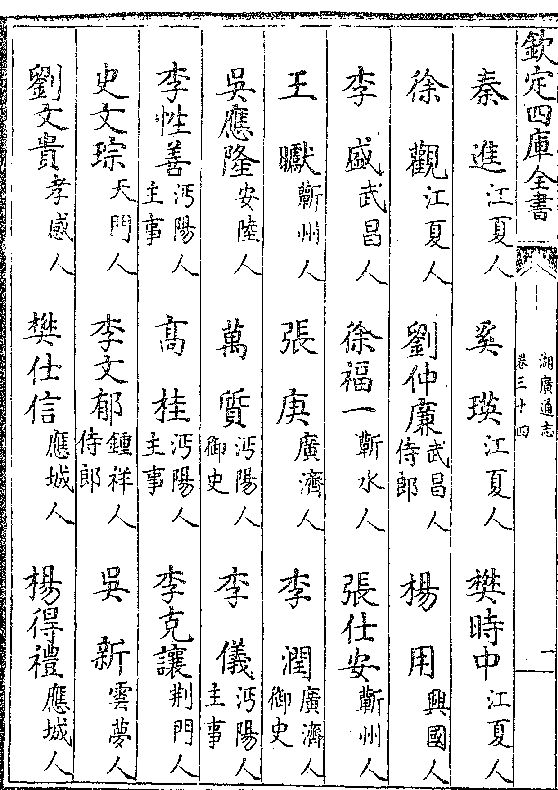 欽定四庫全書
湖廣通志
卷三十四
一
秦進江夏人 奚瑛江夏人 樊時中江夏人
徐觀江夏人 劉仲廉武昌人侍郎 楊用興國人
李盛武昌人 徐福一蘄水人 張仕安蘄州人
王獻蘄州人 張庚廣濟人 李潤廣濟人御史
吳應隆安陸人 萬質沔陽人御史 李儀沔陽人主事
李性善沔陽人主事 高桂沔陽人主事 李克讓荆門人
史文琮天門人 李文郁鍾祥人侍郎 吳新雲夢人
劉文貴孝感人 樊仕信應城人 楊得禮應城人